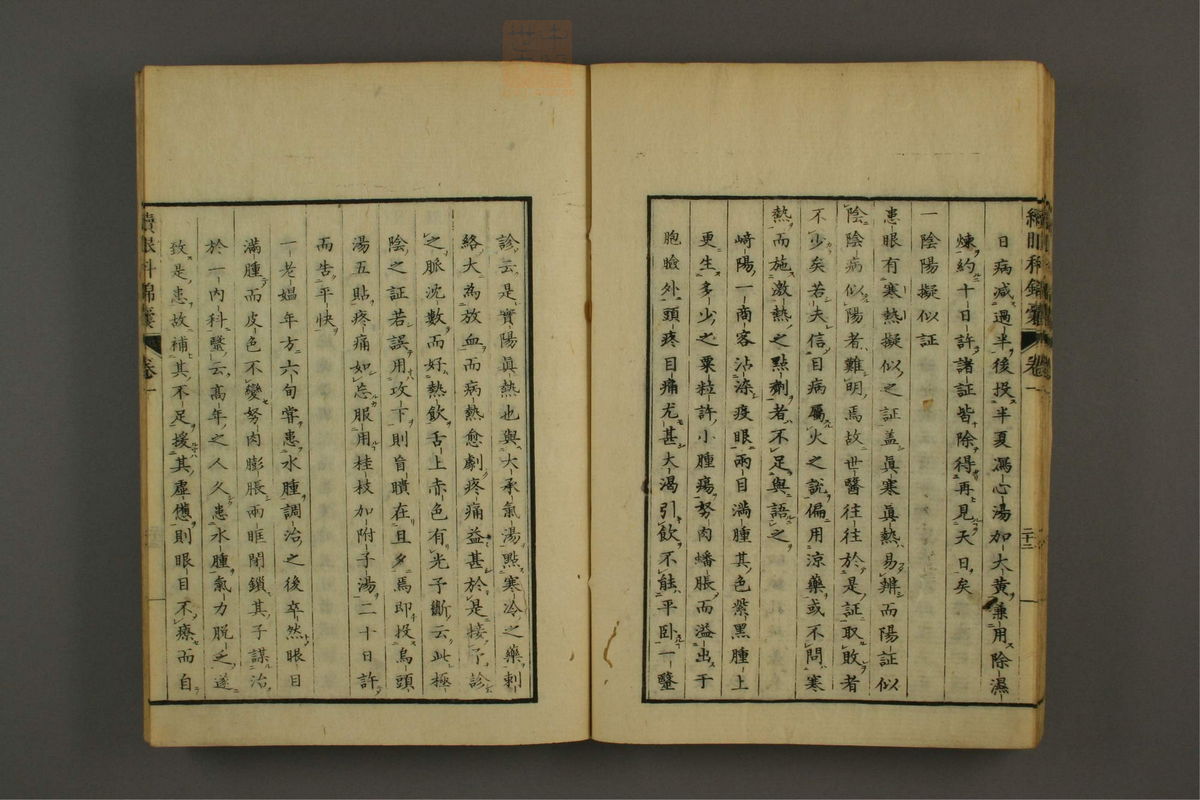 日病減過半後投半夏瀉心湯加大黃兼用除濕
煉約十日許諸証皆除得再見天日矣
一陰陽擬似証
患眼有寒熱擬似之証蓋真寒真熱易辨而陽証似
陰陰病似陽者難明焉故世醫往往於是証取敗者
不少矣若夫信目病屬火之說偏用涼藥或不問寒
熱而施激熱之點劑者不足與語之
崎陽一商客沾染疫眼兩目滿腫其色紫黑腫上
更生多少之粟粒許小腫瘍努肉蟠脹而溢出于
胞瞼外頭疼目痛尤甚大渴引飲不能平卧一醫
診云是實陽眞熱也與大承氣湯點寒冷之藥刺
絡大為放血而病熱愈劇疼痛益甚於是接予診
之脈沈數而好熱飲舌上赤色有光予斷云此極
陰之証若誤用攻下則盲瞶在旦夕焉即投烏頭
湯五貼疼痛如忘服用桂枝加附子湯二十日許
而告平快
一老媼年方六旬嘗患水腫調治之後卒然眼目
滿腫而皮色不變努肉膨脹兩眶閉鎖其子謀治
於一內科醫云高年之人久患水腫氣力脫乏遂
致是患故補其不足援其虛憊則眼目不療而自
續眼科錦囊 卷一
二十二